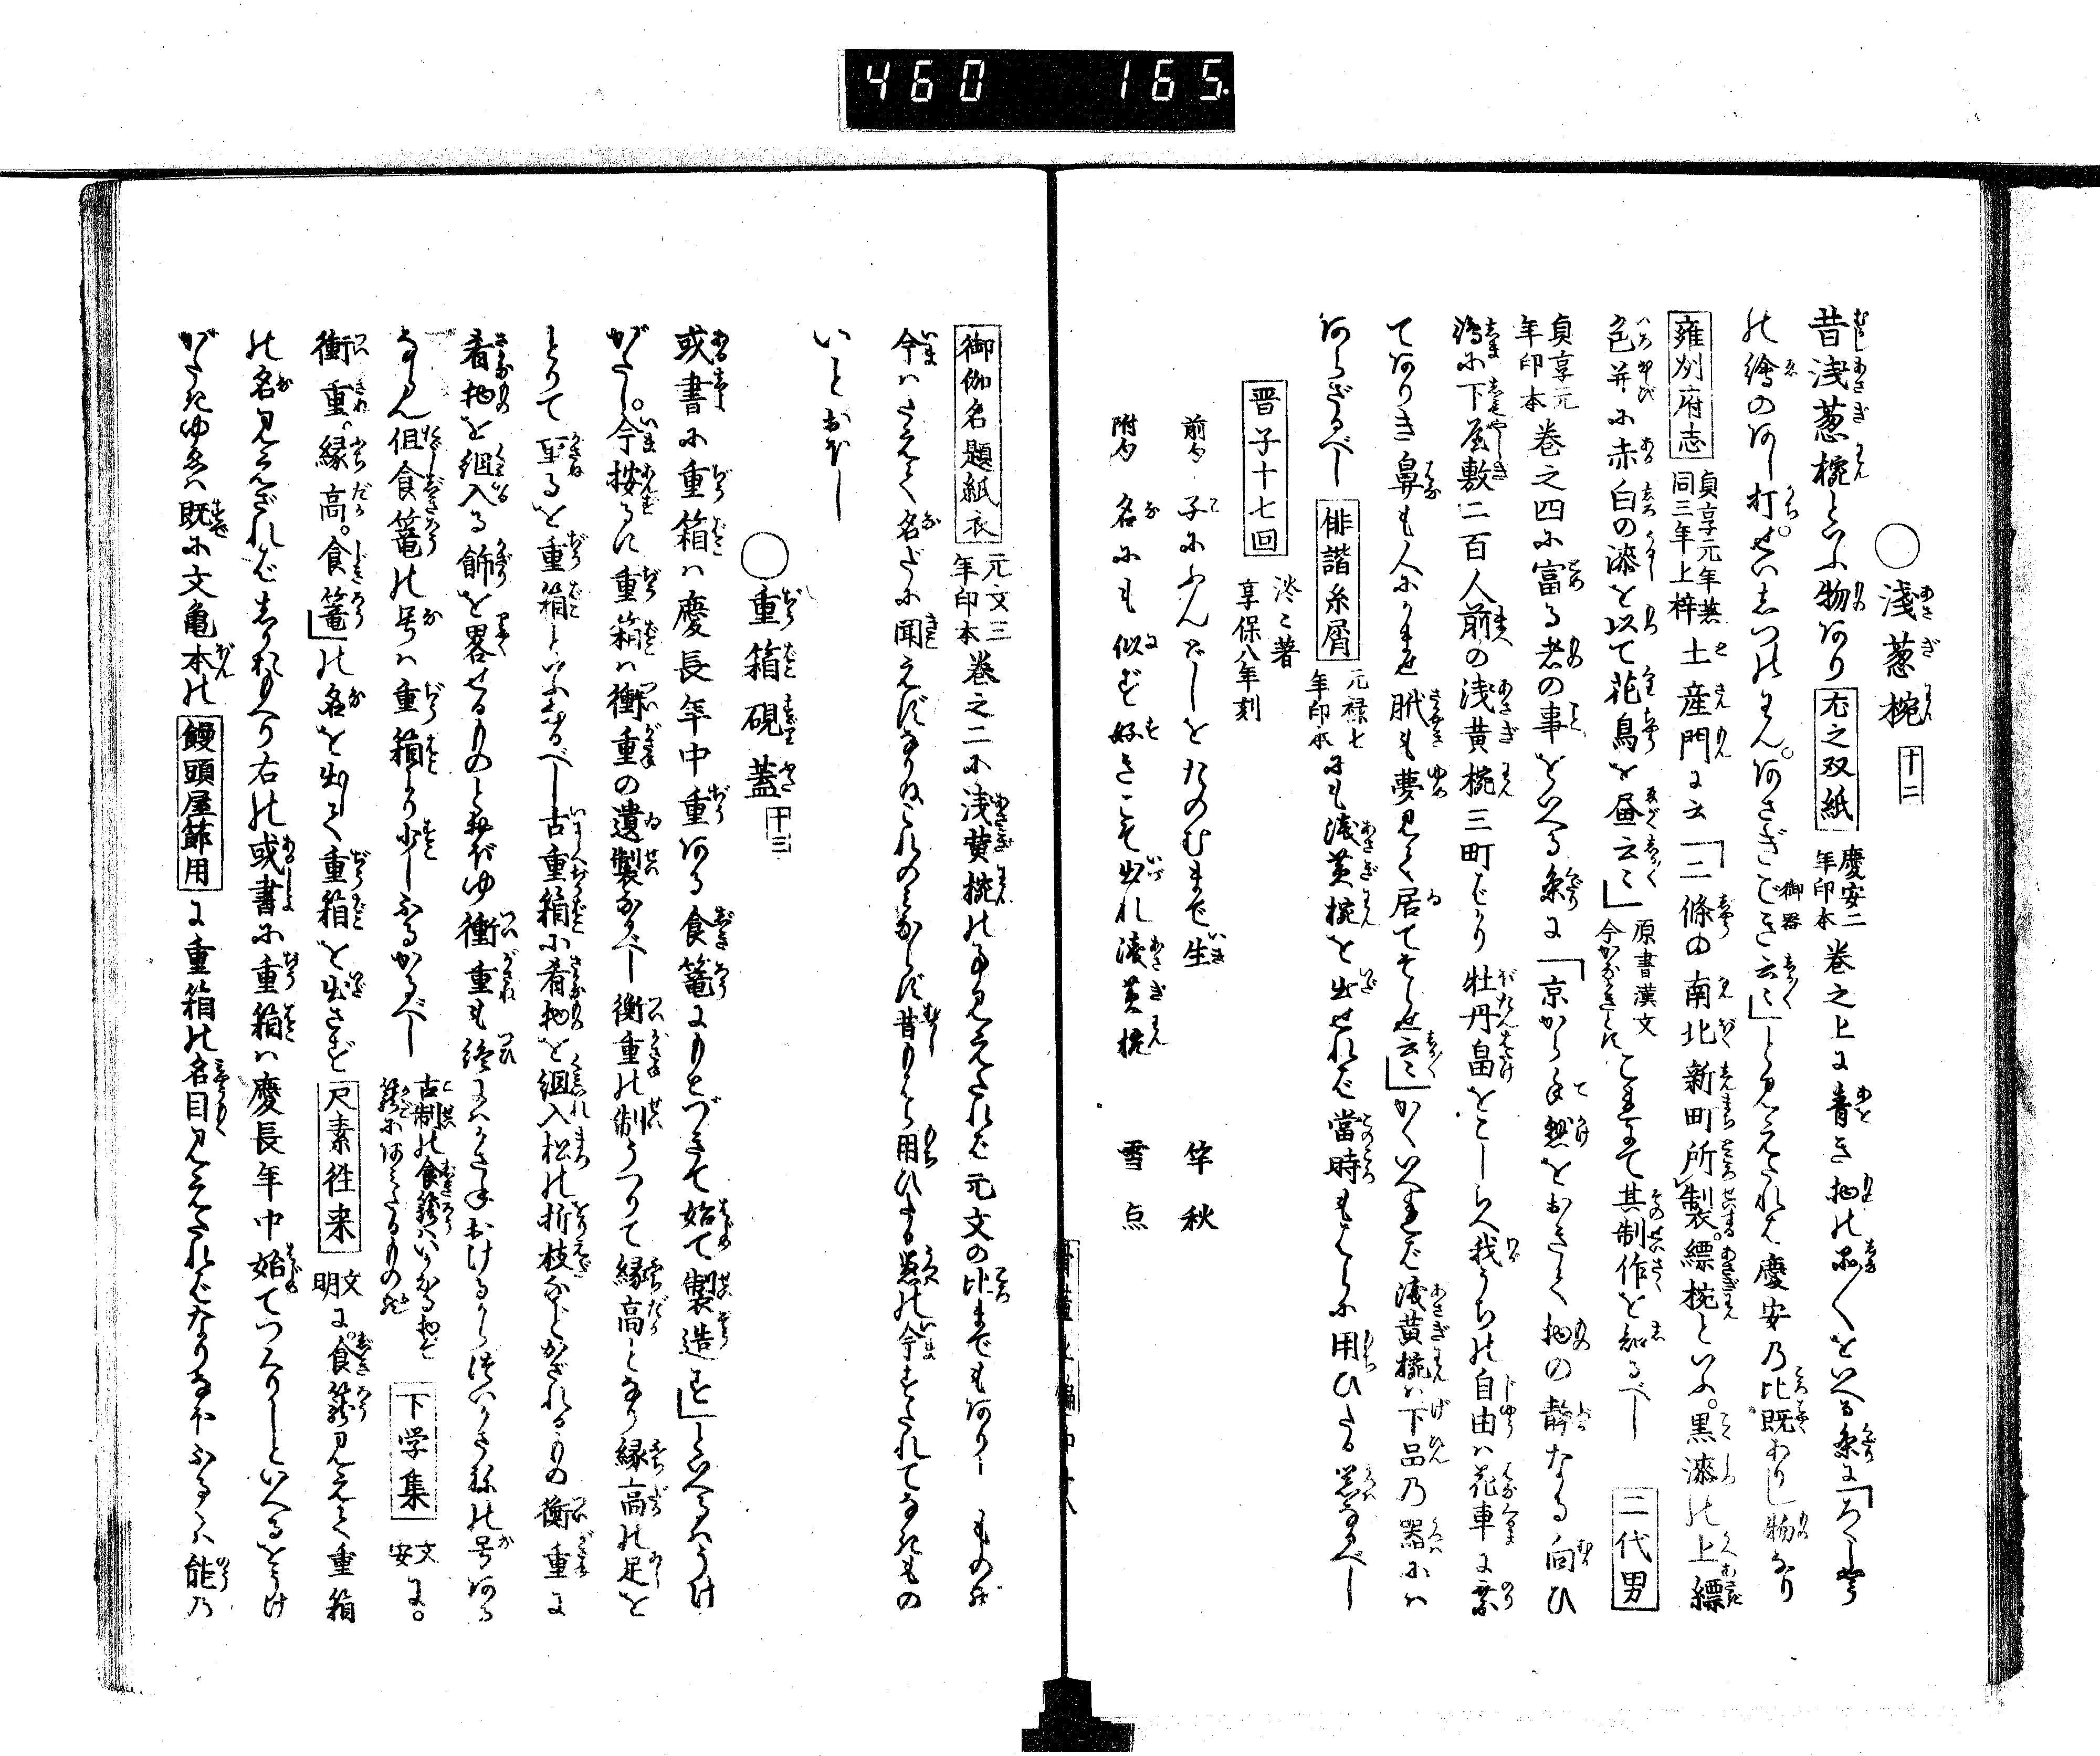 460 165.
○浅葱椀 十二
昔浅葱椀といふ物あり 尤之双紙 慶安二年印本 巻之上に青き物の品〳〵をいへる条に「ろくしやう
の絵のあし打。せいしいつのわん。あさぎごき 御器 云云」と見えたれば慶安の比既ありし物なり
雍州府志 貞享元年撰同三年上梓 土産門に云「二條の南北新町所製。縹椀といふ。黒漆の上縹
色并に赤白の漆を以て花鳥を画云云」 原書漢文今かながきにす これにて其制作を知るべし 二代男
貞享元年印本 巻之四に富る者の事をいへる条に「京から手懸をおきて物の静なる向ひ
嶋に下屋敷二百人前の浅黄椀三町ばかり牡丹畠をこしらへ我うちの自由は花車に乗
てありき鼻も人にかませ胝も夢見て居てそらせ云云」かくいへれば浅黄椀は下品の器には
あらざるべし 俳諧糸屑 元禄七年印本 にも浅黄椀を出せれば当時もはらに用ひたる器なるべし
晋子十七回 淡々著享保八年刻
前句 子にふんどしをたのむまで生 竿秋
附句 名にも似ず好きこそ出れ浅黄椀 雪点
骨董上編中十八
御伽名題紙衣 元文三年印本 巻之二に浅黄椀の事見えたれば元文の比までもありしものか
今はさえて名だに聞えずなりぬこれのみならず昔もはら用ひたる器の今はすたれてなきもの
いとおほし
○重箱硯蓋 十三
或書に重箱は慶長年中重ある食篭にもとづきて始て製造す」といへるはうけ
がたし。今按るに重箱は衝重の遺製なるべし衝重の制うつりて縁高となり縁高の足を
とりて重るを重箱といふなるべし古重箱に肴物を組入松の折枝などかざれるもの衝重に
肴物を組入る飾を畧せるものと知ゆ衝重も後にはかさねおけるからにつひかさねの号ある
ならん但食篭の号は重箱より少しふるかるべし 古制の食籠はいかなる物ぞ籠にあみたるものか 下学集 文安 に。
衝重。縁高。食篭」の名を出して重箱を出さず 尺素往来 文明 に。食籠見えて重箱
の名見えざればしかおもへり右の或書に重箱は慶長年中始てつくりしといへるをうけ
がたきゆゑは既に文亀本の 饅頭屋節用 に重箱の名目見えたればなりなほふるくは能の